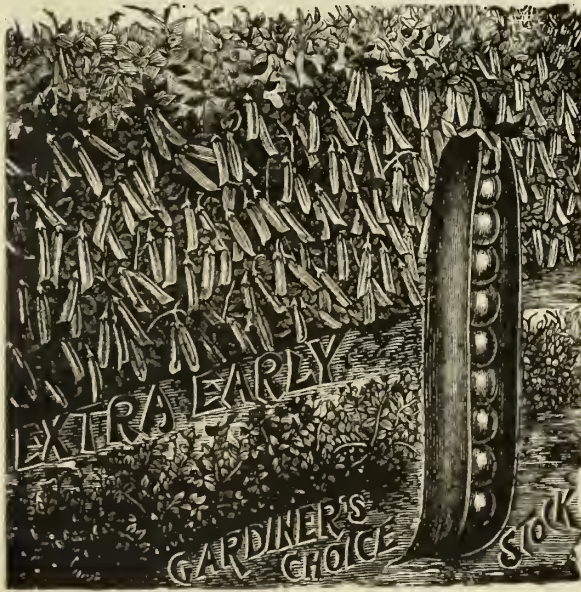 EXTRA EARLY
GARDINER'S
CHOICE STOCK